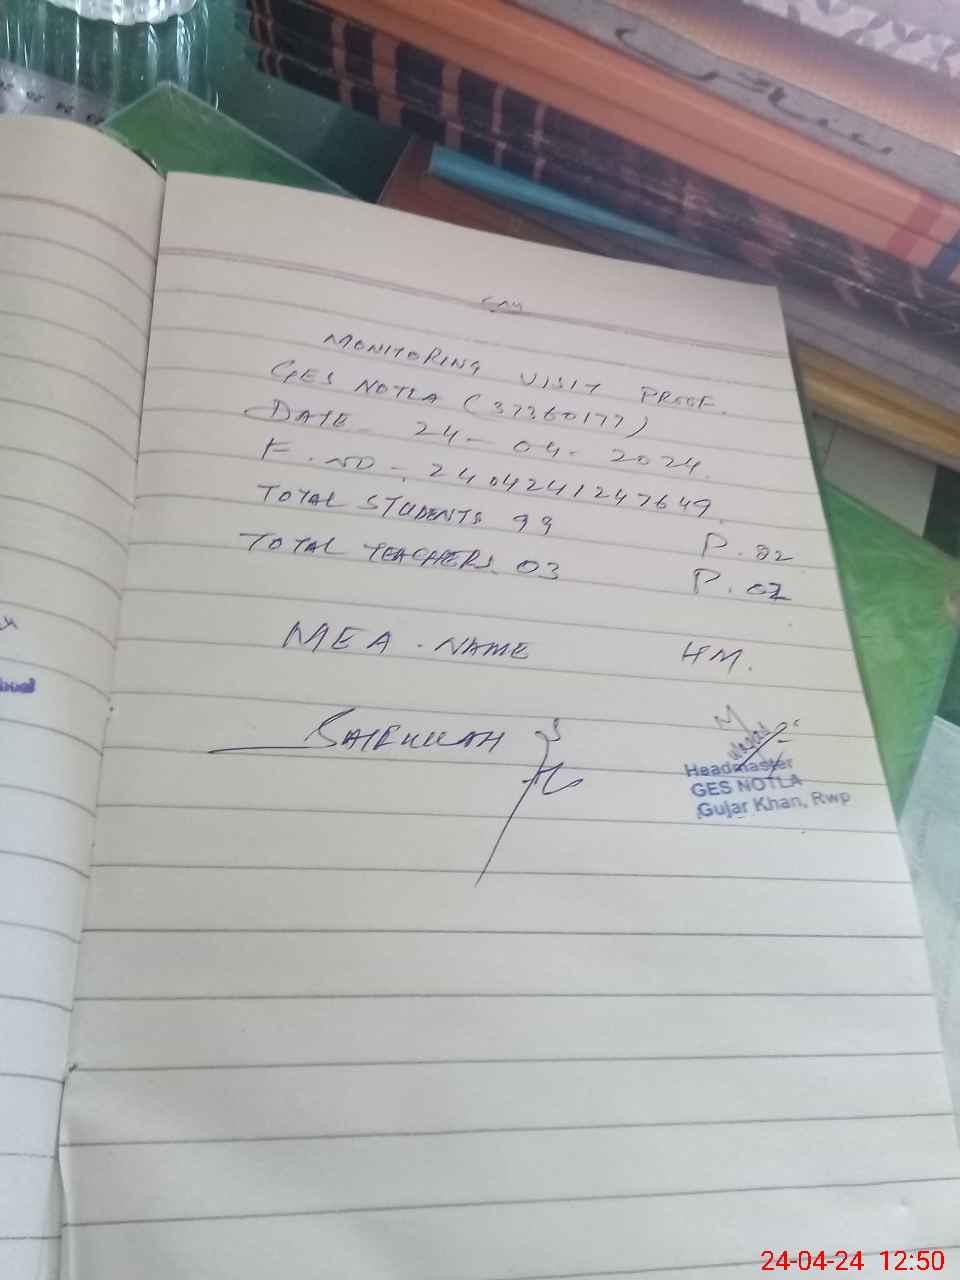 MONITORING VISIT PROOF.
GES NOTLA (37360177)
DATE - 24-04-2024.
F. NO - 2404241247649.
TOTAL STUDENTS 99 P. 82
TOTAL TEACHERS 03 P. 02
MEA. NAME HM.
SAIFULLAH
Headmaster
GES NOTLA
Gujar Khan, Rwp
24-04-24 12:50